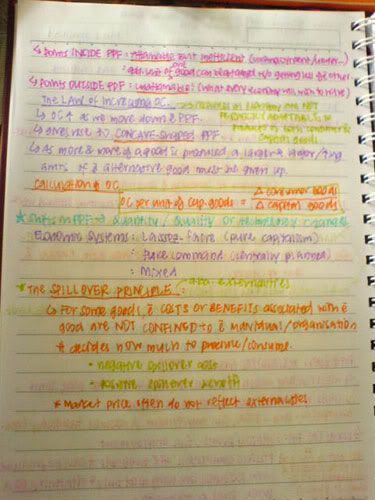 ↳ Points INSIDE PPF: attainable but inefficient (unemployment/under...)
: addi. unit of one good can be attained w/o getting less of other
↳ Points OUTSIDE PPF: unattainable: (what every economy will wish to achieve)
The Law of Increasing OC... → resources in economy are NOT
↳ OC ↑ as we move down ē PPF. PERFECTLY ADAPTABLE to ē
↳ gives rise to CONCAVE-SHAPED PPF. production of both consumer &
capital goods
↳ As more & more of a good is produced a larger & larger/↑ing
amts of ē alternative good must be given up.
Calculation of OC
OC per unit of cap. goods = Δ consumer goods
Δ capital goods
★ Shifts in PPF → quantity/quality or technology changes
Economic Systems: Laissez-Faire (pure capitalism)
: Pure command (centrally planned)
: Mixed
★ The SPILLOVER PRINCIPLE: aka externalities
↳ For some goods, ē COSTS OR BENEFITS associated with ē
good are NOT CONFINED to ē individual/organisation
tt decides how much to produce/consume.
- negative spillover cost
- positive spillover benefit
★ Market price often do not reflect externalities